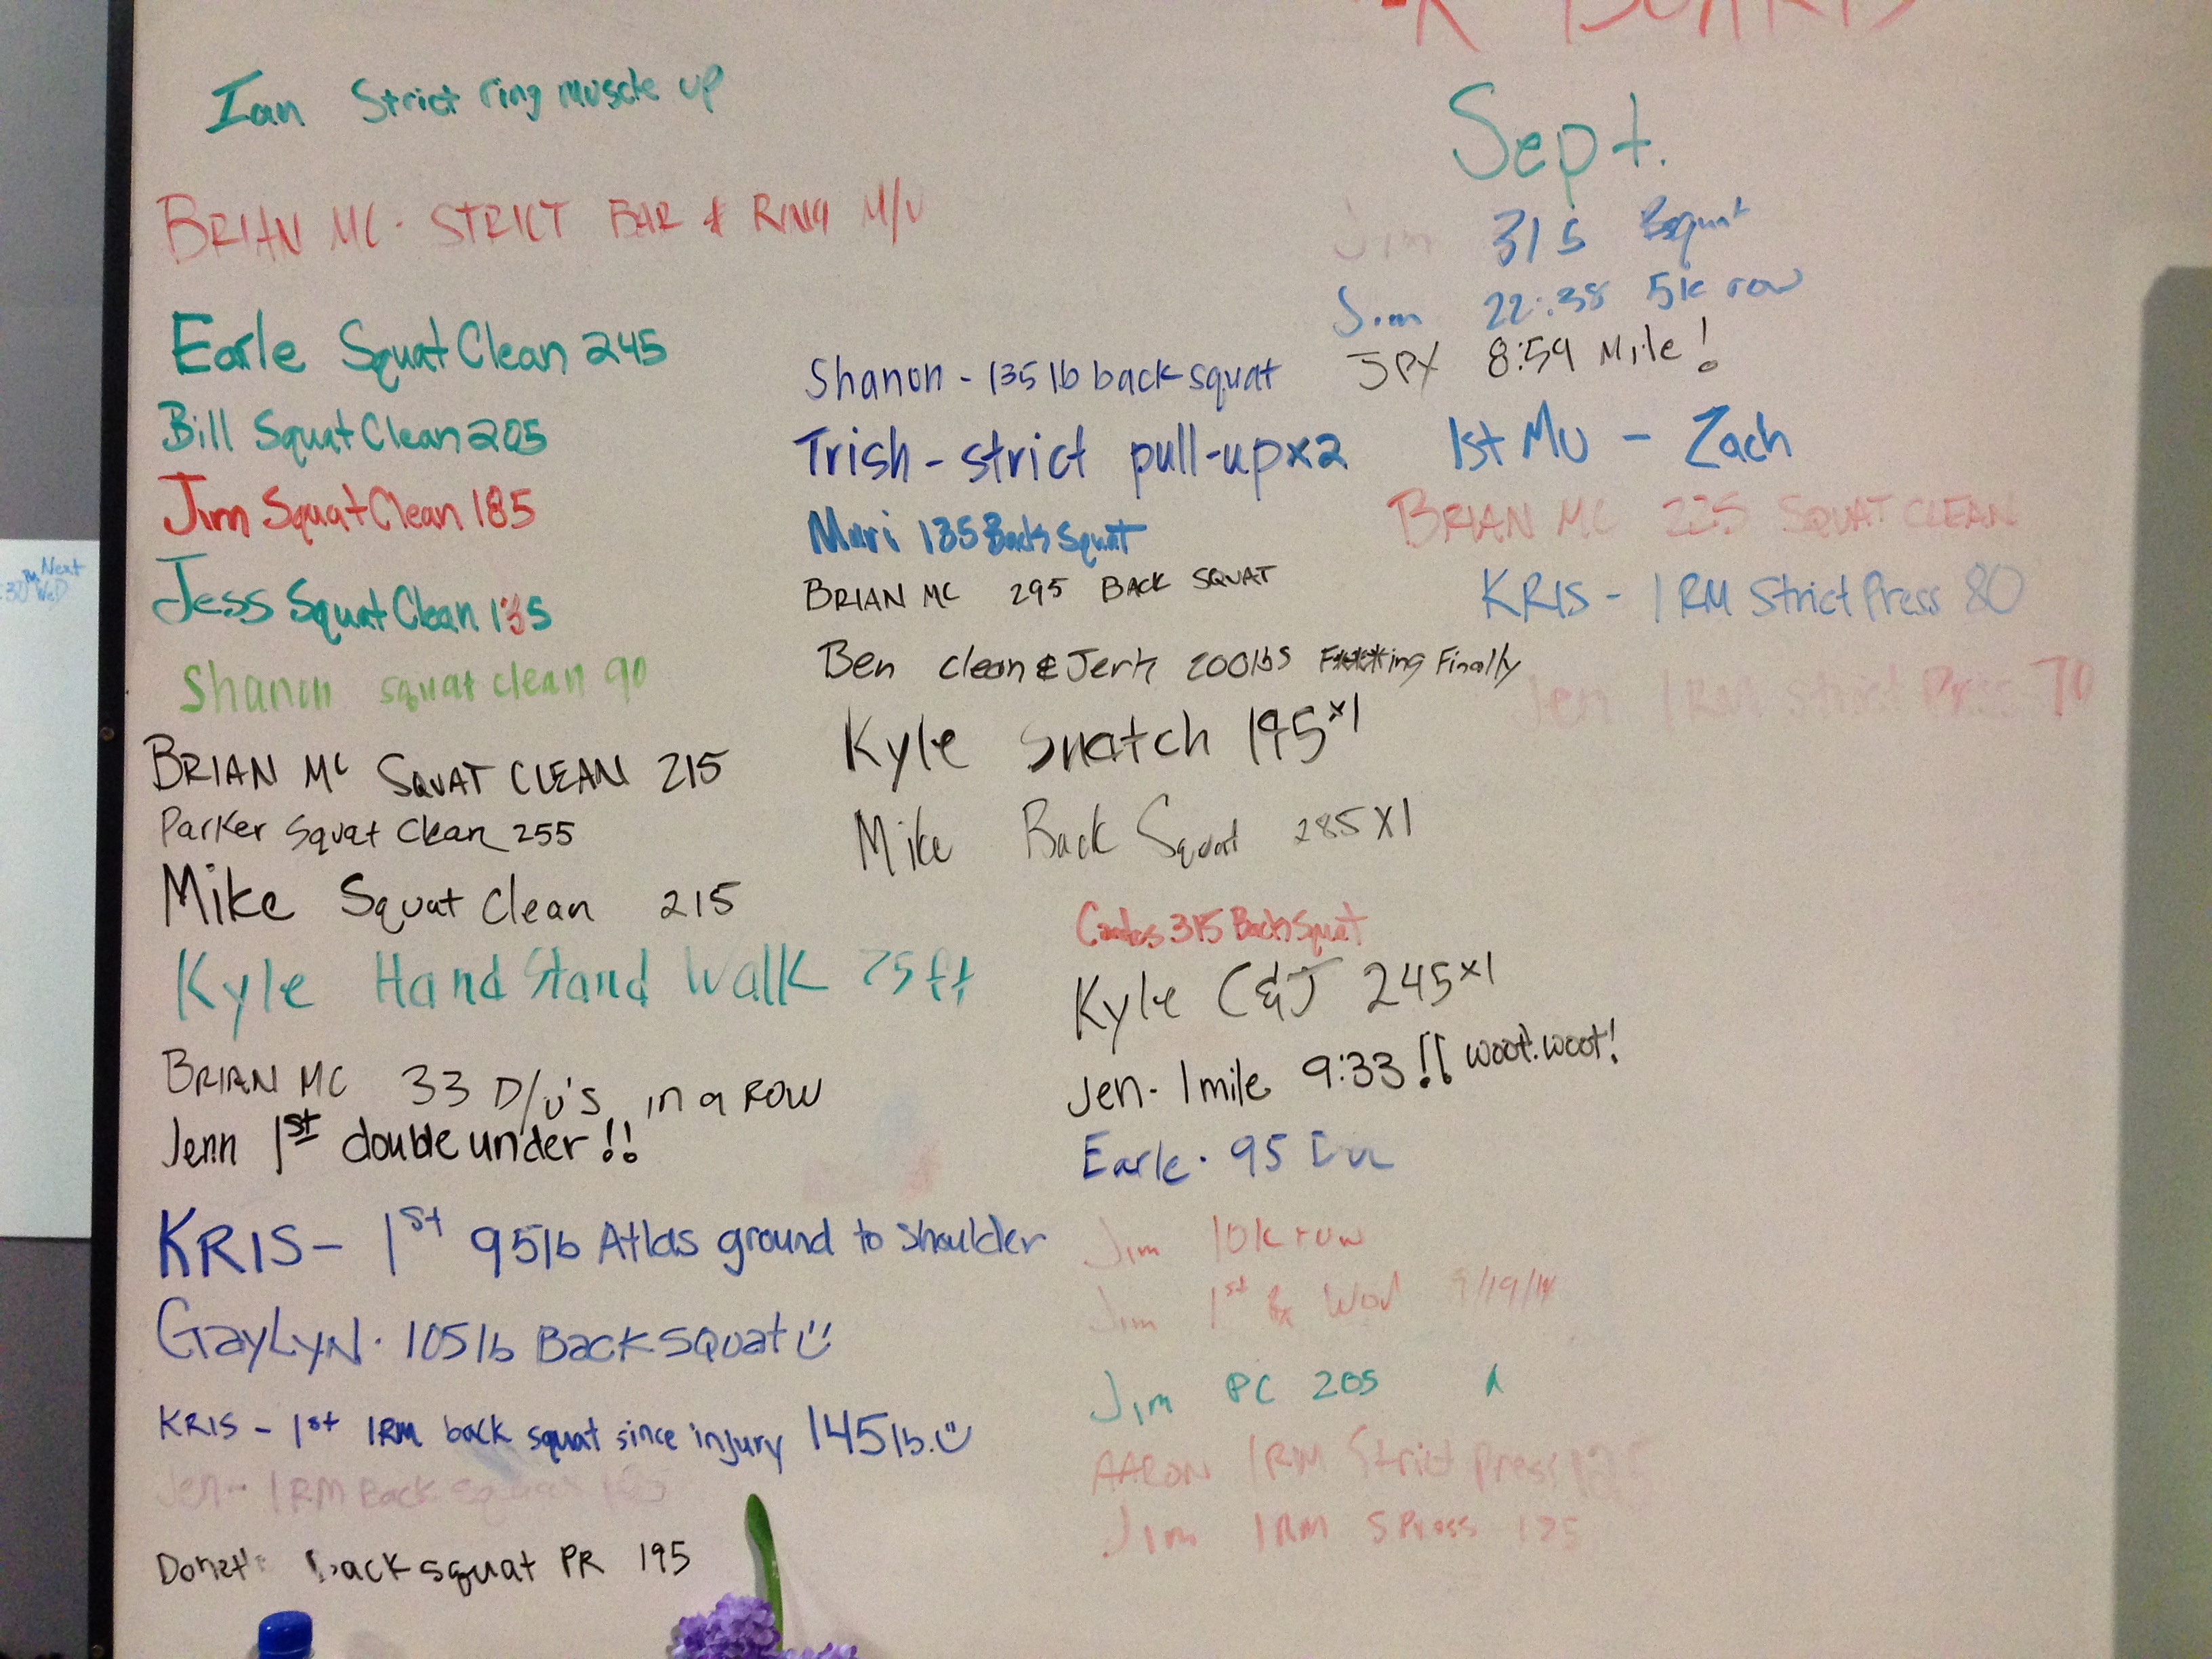 Ian Strict ring muscle up
BRIAN MC. STRICT BAR & RING M/U
Earle Squat Clean 245
Bill Squat Clean 205
Jim Squat Clean 185
Jess Squat Clean 135
Shanon squat clean 90
BRIAN MC SQUAT CLEAN 215
Parker Squat Clean 255
Mike Squat Clean 215
Kyle Hand Stand Walk 75 ft
BRIAN MC 33 D/U'S in a ROW
Jenn 1st double under!!
KRIS - 1st 95lb Atlas ground to shoulder
GayLyN. 105lb Back SQuat
KRIS - 1st 1RM back squat since injury 145lb.
Jen - 1RM Back Squat
back squat PR 195
Shanon - 135 lb back squat
Trish - strict pull-up x2
135 Back Squat
BRIAN MC 295 BACK SQUAT
Ben Clean & Jerk 200lbs F****ing Finally
Kyle Snatch 195 x1
Mike Back Squat 285 x1
315 Back Squat
Kyle C&J 245 x1
Jen - 1 mile 9:33!! woot. woot!
Earle. 95
Jim 10k row
Jim 1st Rx WOD 9/19/14
Jim PC 205
AARON 1RM Strict press
Jim 1RM S Press
Sept.
Jim 315 Bsquat
Jim 22:38 5k row
8:59 Mile!
1st MU - Zach
BRIAN MC 225 SQUAT CLEAN
KRIS - 1 RM Strict Press 80
Jen 1RM Strict Press 70
Next